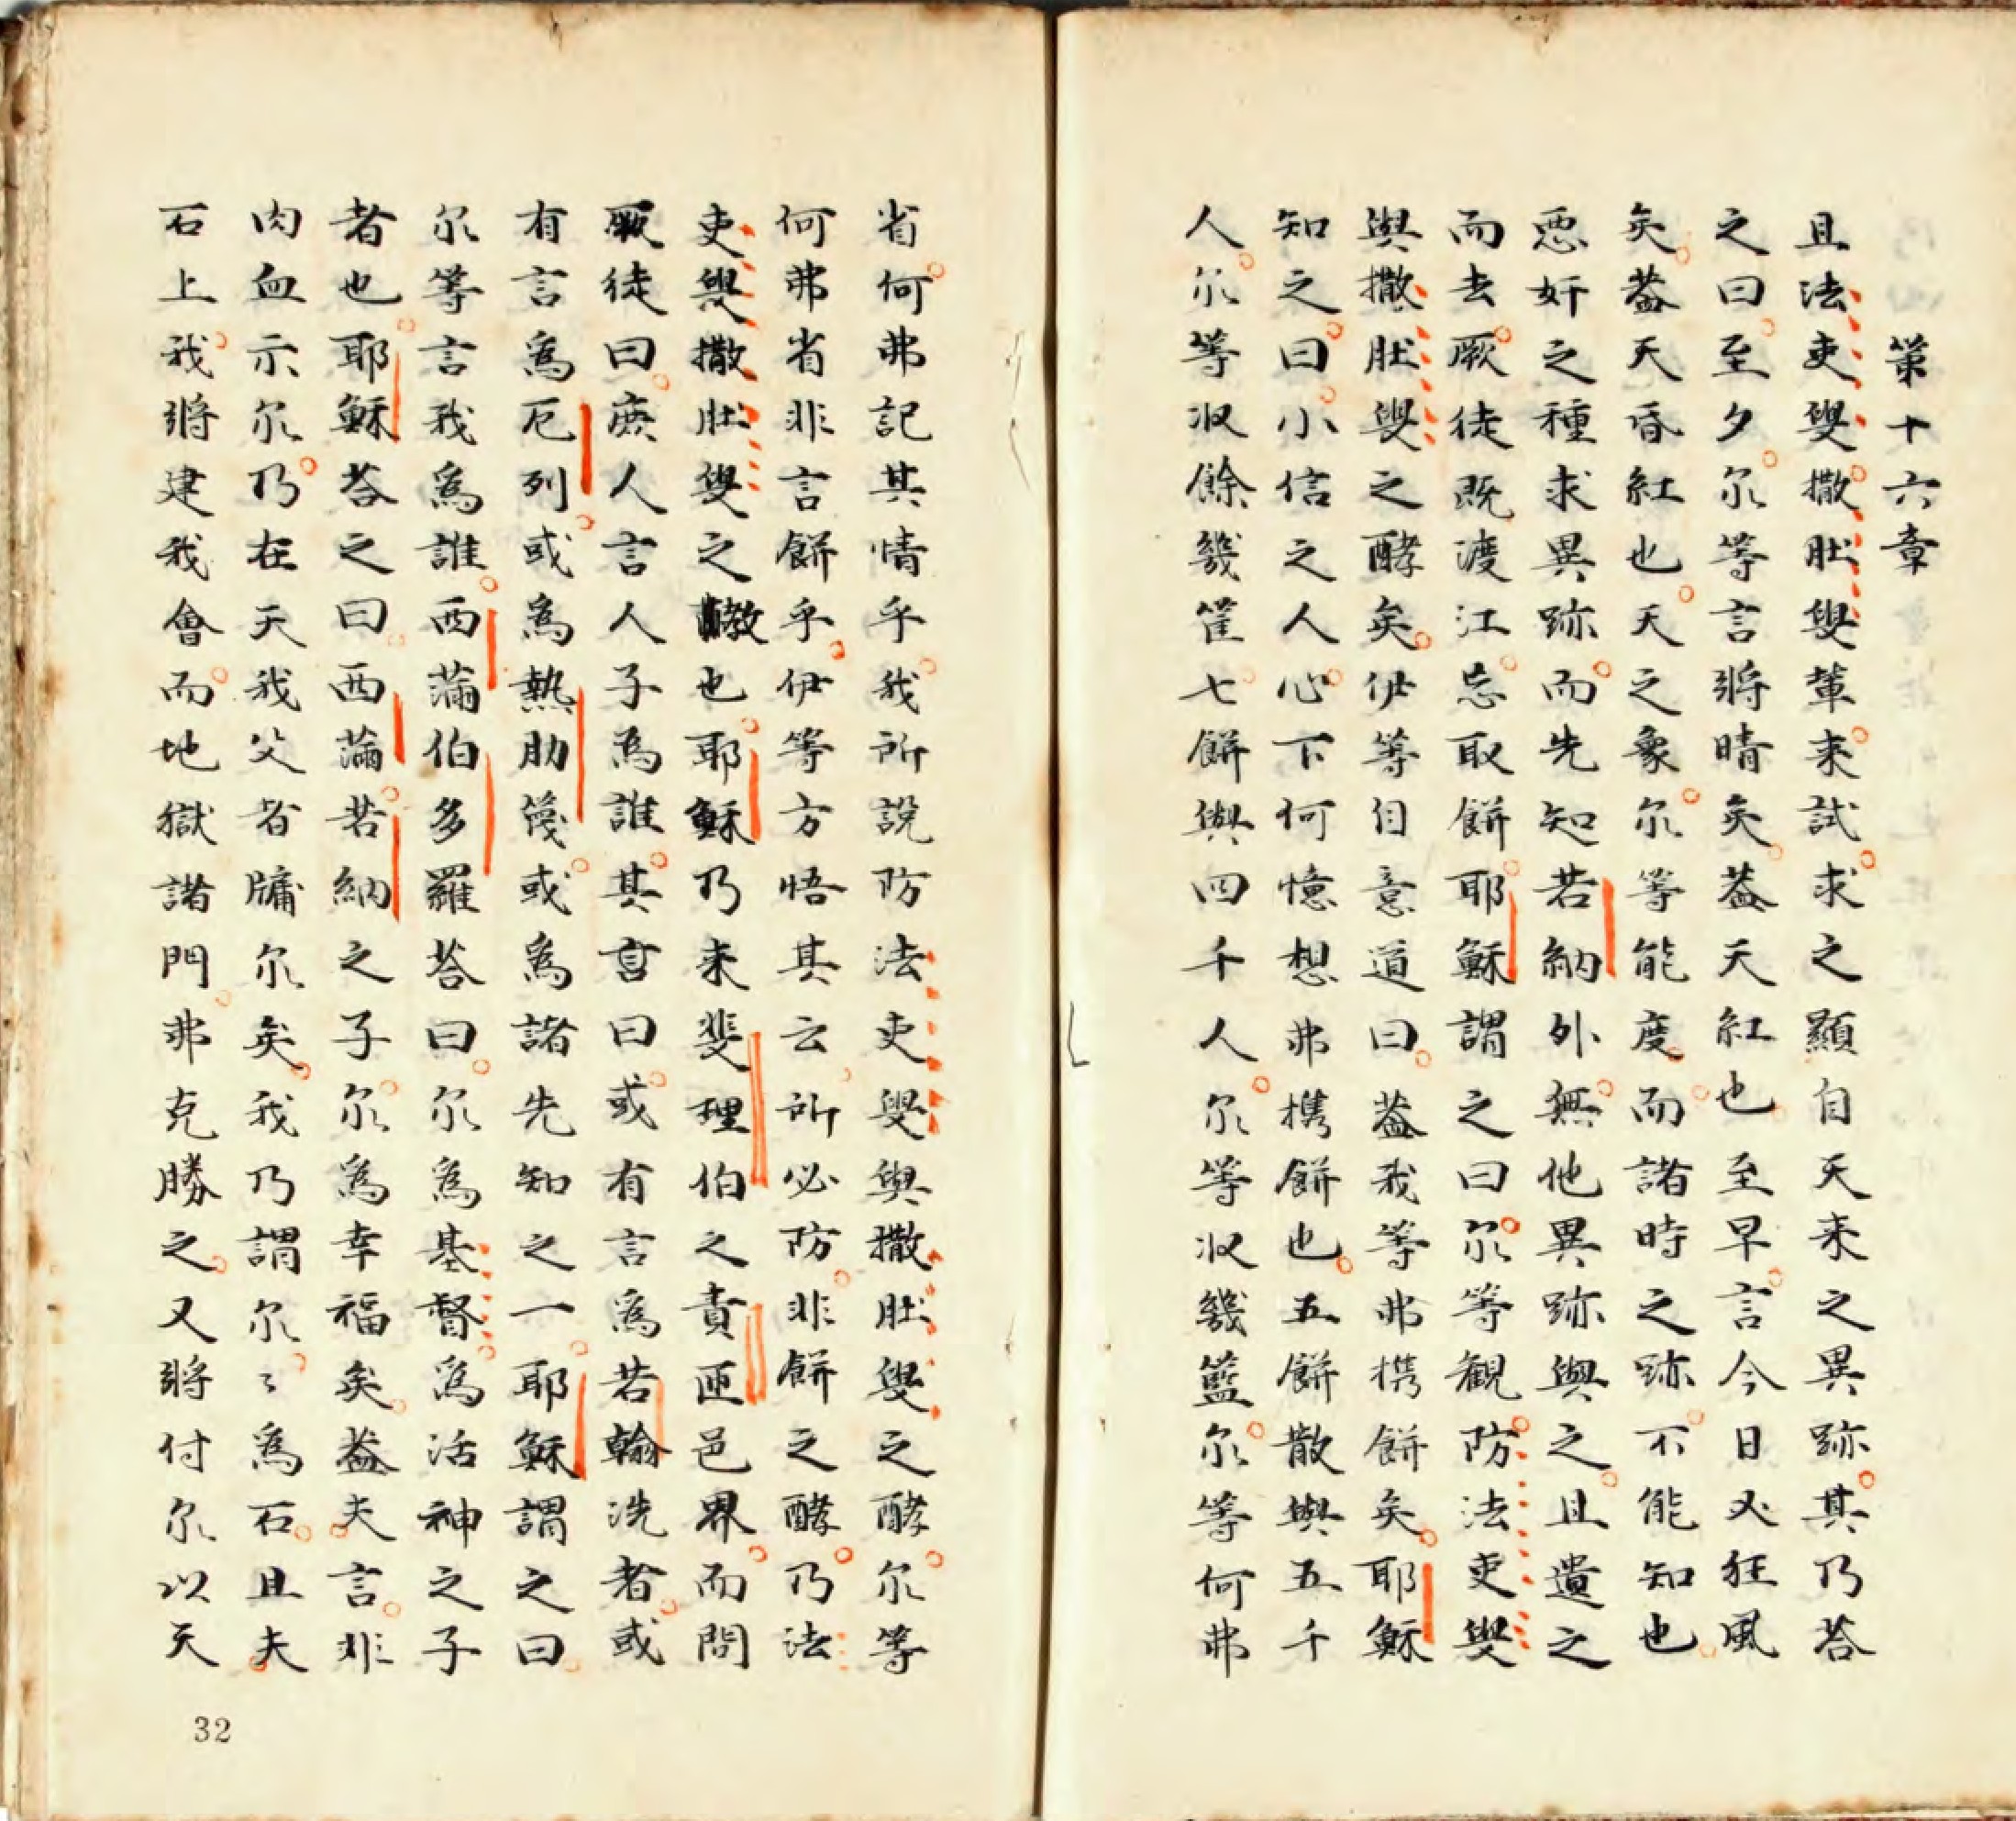 第十六章
且法吏叟撒肚叟輩来試求之顯自天来之異跡其乃荅
之曰至夕尔等言將晴矣葢天紅也至早言今日必狂風
矣葢天昏紅也天之象尔等能度而諸時之跡不能知也
悪奸之種求異跡而先知若納外無他異跡與之且遺之
而去厥徒既渡江忘取餅耶穌謂之曰尔等観防法吏叟
與撒肚叟之酵矣伊等自意道曰葢我等弗携餅矣耶穌
知之曰小信之人心下何憶想弗携餅也五餅散與五千
人尔等収餘幾筐七餅與四千人尔等収幾籃尔等何弗
省何弗記其情乎我所說防法吏叟與撒肚叟之酵尔等
何弗省非言餅乎伊等方悟其云所必防非餅之酵乃法
吏叟撒肚叟之教也耶穌乃来斐理伯之責匝邑界而問
厥徒曰庶人言人子為誰其言曰或有言爲若翰洗者或
有言爲厄列或為熱肋篾或爲諸先知之一耶穌謂之曰
尔等言我爲誰西滿伯多羅荅曰尔爲基督爲活神之子
者也耶穌荅之曰西滿若納之子尔爲幸福矣葢夫言非
肉血示尔乃在天我父者牖尔矣我乃謂尔〻爲石且夫
石上我將建我會而地獄諸門弗克勝之又將付尔以天
32